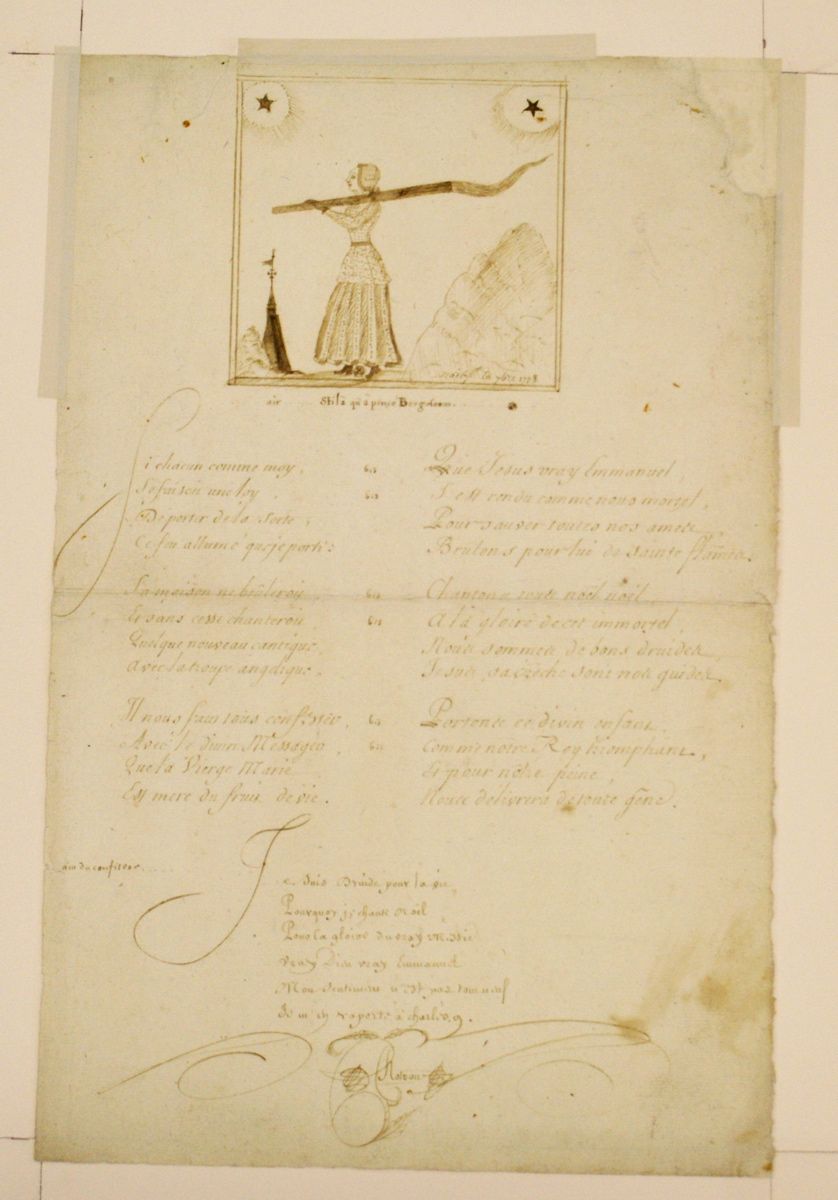 air Stila qu'a pincé Bergobsom.
Si chacun comme moy, bis
Se faisoit une loy bis
De porter de la sorte,
Ce feu allumé que je porte:
Sa maison ne brûleroit, bis
Et sans cesse chanteroit bis
Quelque nouveau cantique,
Avec la troupe angelique.
Il nous faut tous confesser, bis
Avec le divin Messager, bis
Que la Vierge Marie
Est mere du fruit de vie.
Que Jesus vray Emmanuel,
S'est rendu comme nous mortel,
Pour sauver toutes nos ames
Brûlons pour lui de sainte flames
Chantons tous noël noël,
A la gloire de cet immortel,
Nous sommes de bons druides,
Jesus, sa Créche sont nos guides
Portons ce divin enfant
Comme notre Roy triomphant,
Et pour nôtre peine,
Nous delivrera de toute gêne.
air du confiteor
Je suis Druide pour la vie,
Pourquoy je chante Noël,
Pour la gloire du vray Messie
Vray Dieu vray Emmanuel
Mon sentiment n'est pas tout neuf
Je m'en raporte à charles, 9.